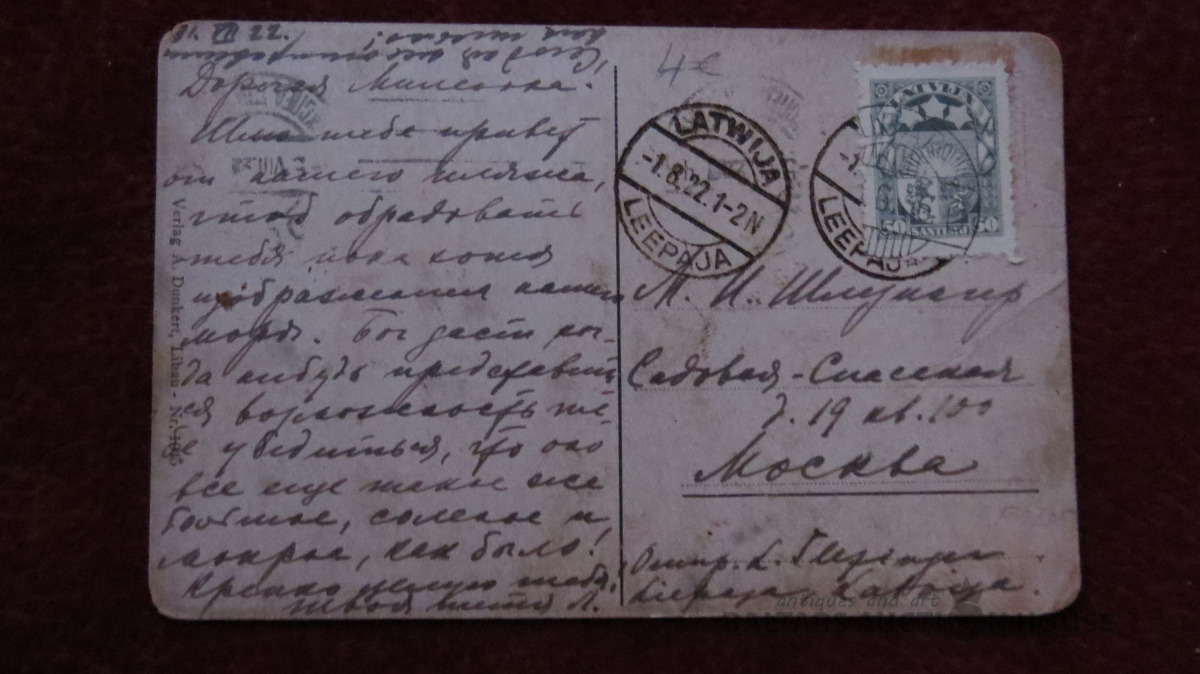 31. VII 22.
Дорогая Милечка.
Шлю тебе привет
от нашего пляжа,
чтоб обрадовать
тебя пока хотя
изображением нашего
моря. Бог даст ког-
да нибудь представит
ся возможность те-
бе убедиться, что оно
все еще такое же
большое, соленое и
мокрое, как было!
Крепко целую тебя,
твоя тетя Л.
Verlag A. Dunkert, Libau - Nr.
4€
LATWIJA
-1.8.22.1-2N
LEEPAJA
LATVIJA
50 SANTIMU 50
-1.
LEEPAJA
М. И.
Садовая-Спасская
д. 19 кв. 100
Москва
Отпр. L.
Liepaja, Latvija.
antiques and art
BALTARS AUCTION HOUSE